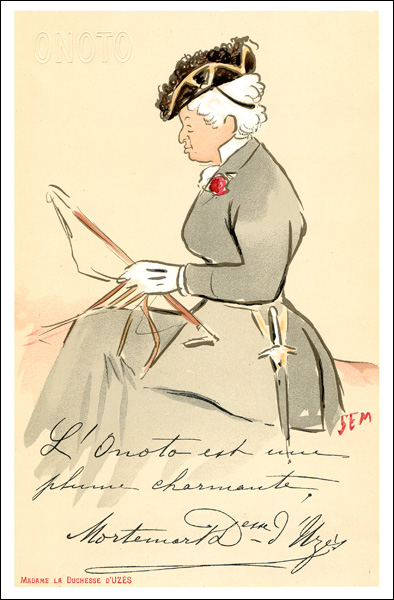 ONOTO
SEM
L'Onoto est une
plume charmante,
Mortemart Dsse d'Uzès
MADAME LA DUCHESSE D'UZES